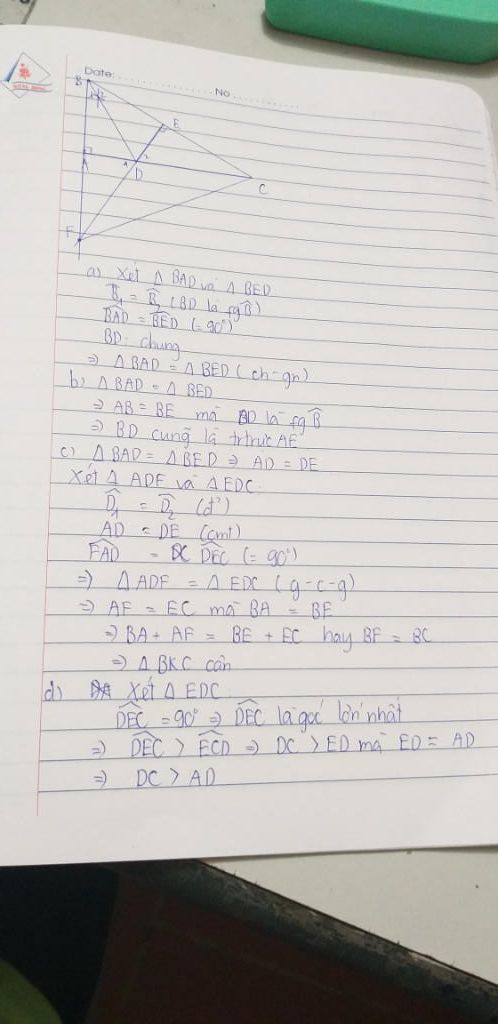 Date: No
B
1 2
E
A
1 2
D
C
F
a) Xét Δ BAD và Δ BED
B̂₁ = B̂₂ (BD là fg B̂)
BAD̂ = BED̂ (= 90°)
BD: chung
⇒ Δ BAD = Δ BED (ch-gn)
b) Δ BAD = Δ BED
⇒ AB = BE mà BD là fg B̂
⇒ BD cũng là tr trực AE
c) Δ BAD = Δ BED ⇒ AD = DE
Xét Δ ADF và Δ EDC
D̂₁ = D̂₂ (đ²)
AD = DE (cmt)
FAD̂ = DEĈ (= 90°)
⇒ Δ ADF = Δ EDC (g-c-g)
⇒ AF = EC mà BA = BE
⇒ BA + AF = BE + EC hay BF = BC
⇒ Δ BKC cân
d) Xét Δ EDC
DEĈ = 90° ⇒ DEĈ là góc lớn nhất
⇒ DEĈ > ECD̂ ⇒ DC > ED mà ED = AD
⇒ DC > AD